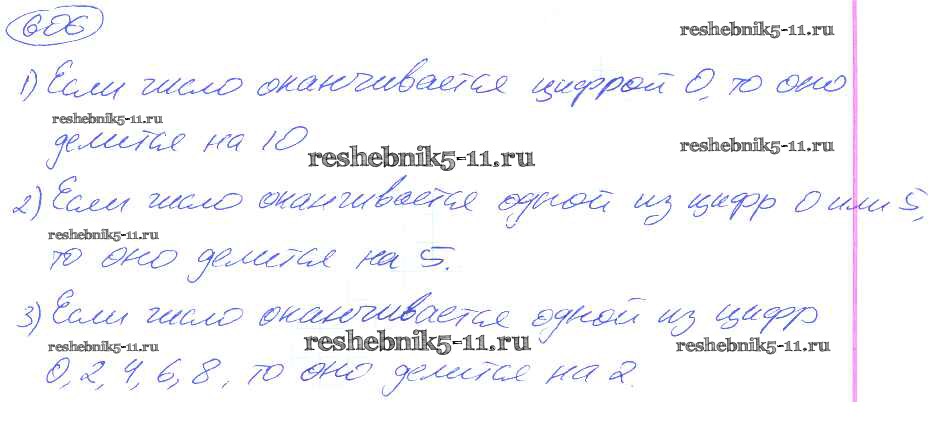 606
reshebnik5-11.ru
1) Если число оканчивается цифрой 0, то оно
reshebnik5-11.ru
делится на 10
reshebnik5-11.ru
reshebnik5-11.ru
2) Если число оканчивается одной из цифр 0 или 5,
reshebnik5-11.ru
то оно делится на 5.
3) Если число оканчивается одной из цифр
reshebnik5-11.ru
reshebnik5-11.ru
reshebnik5-11.ru
0, 2, 4, 6, 8, то оно делится на 2.